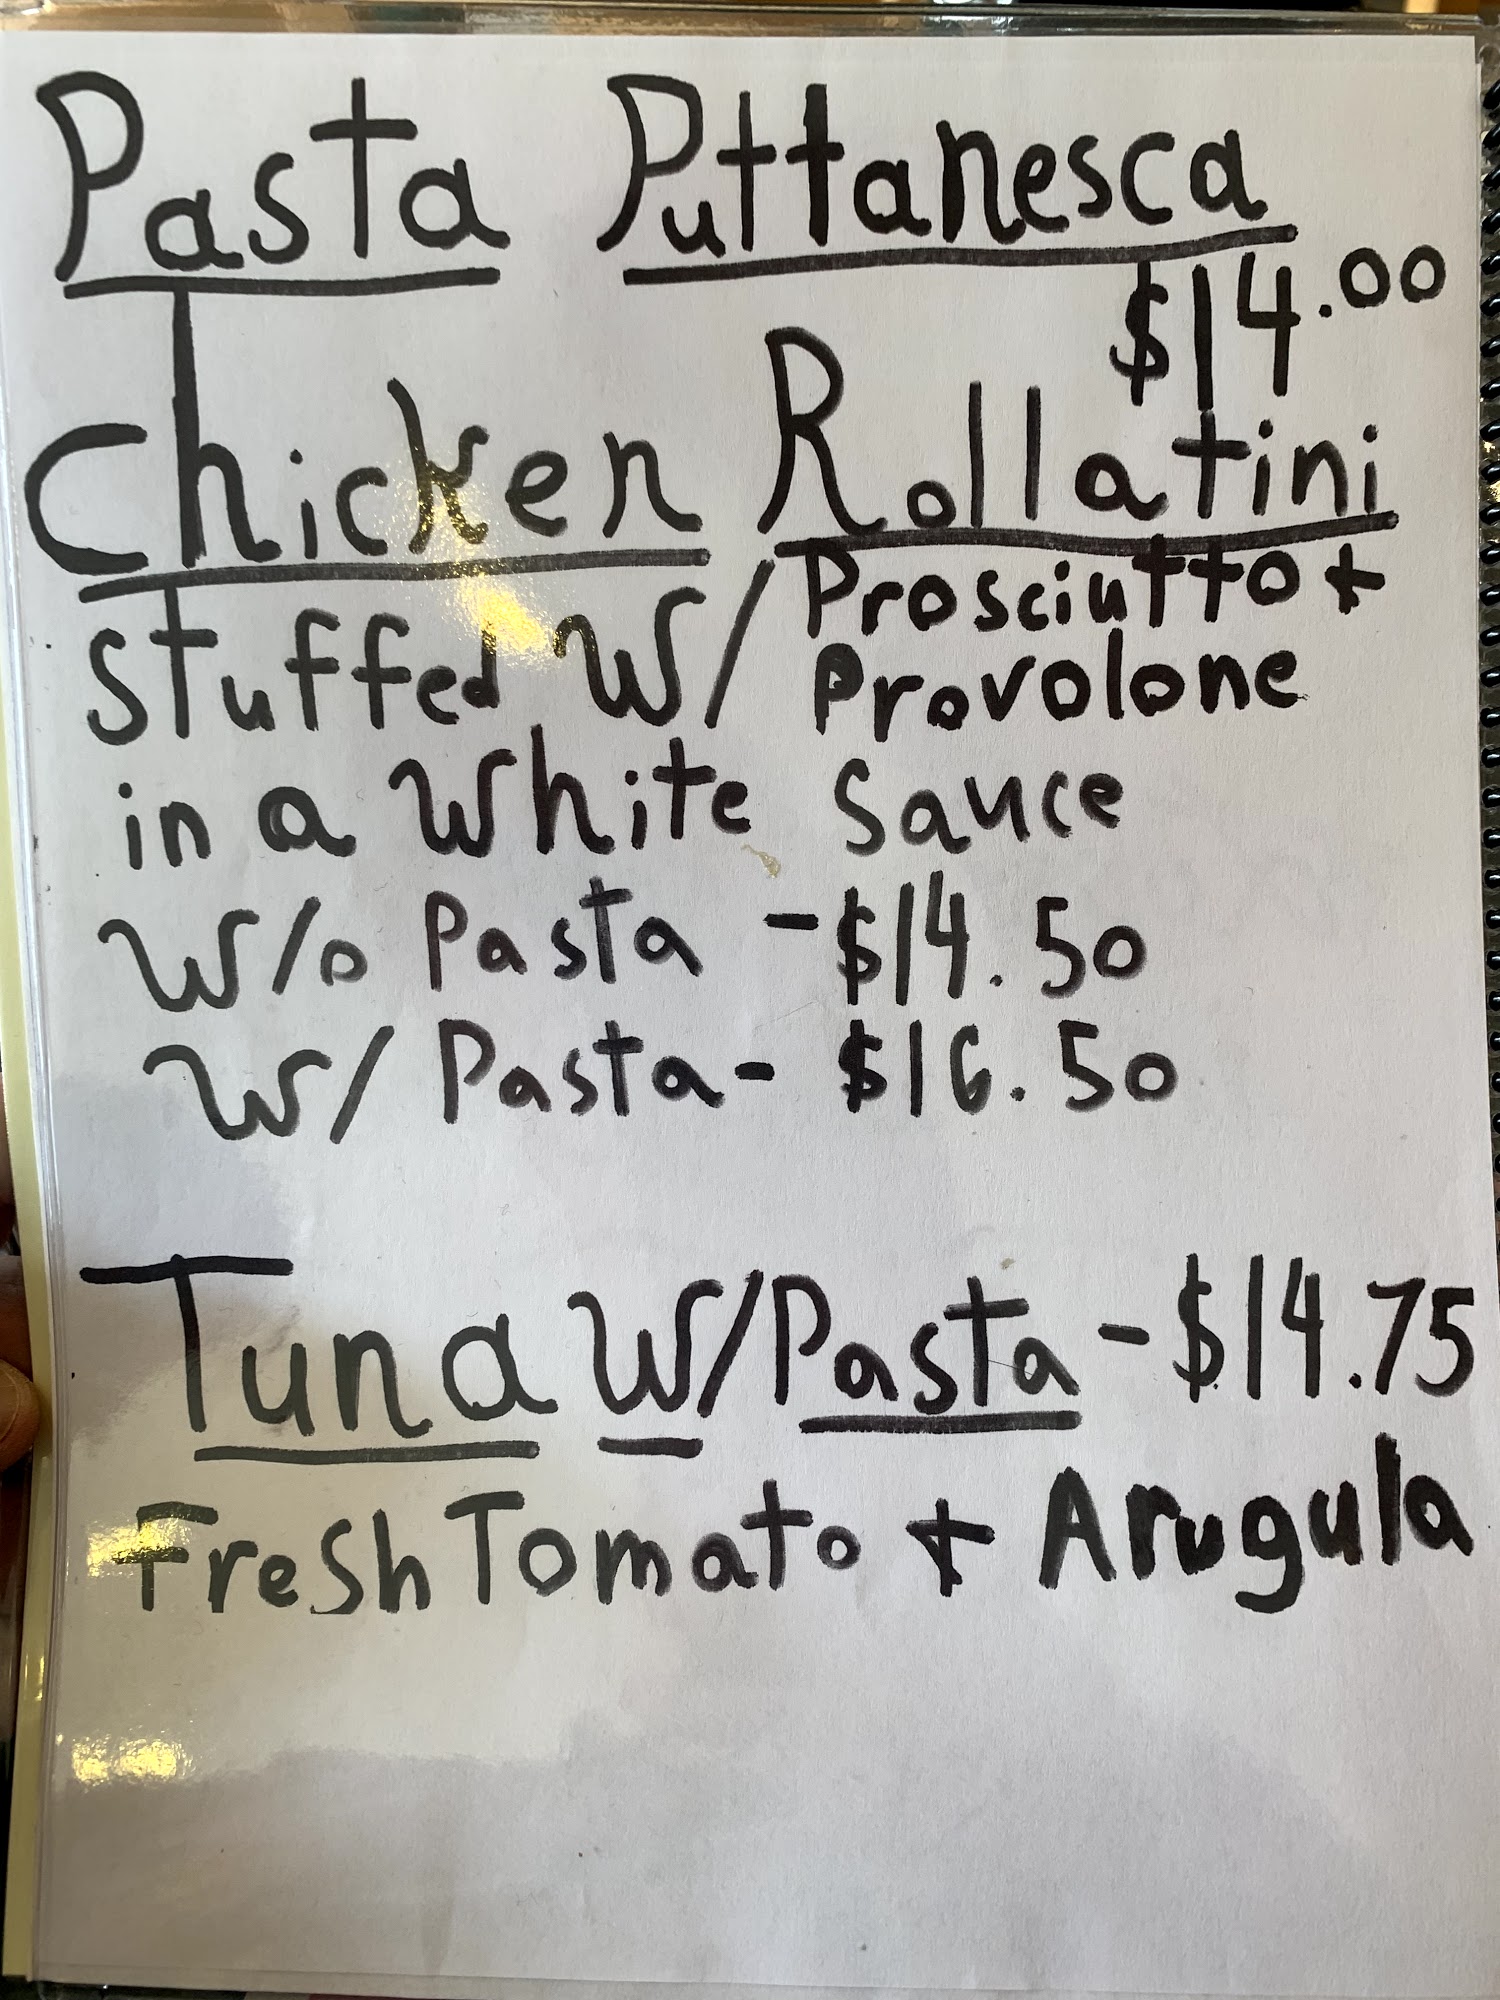 Pasta Puttanesca
$14.00
Chicken Rollatini
Stuffed w/ Prosciutto +
Provolone
in a White Sauce
W/o Pasta - $14.50
W/ Pasta - $16.50
Tuna W/Pasta - $14.75
Fresh Tomato + Arugula